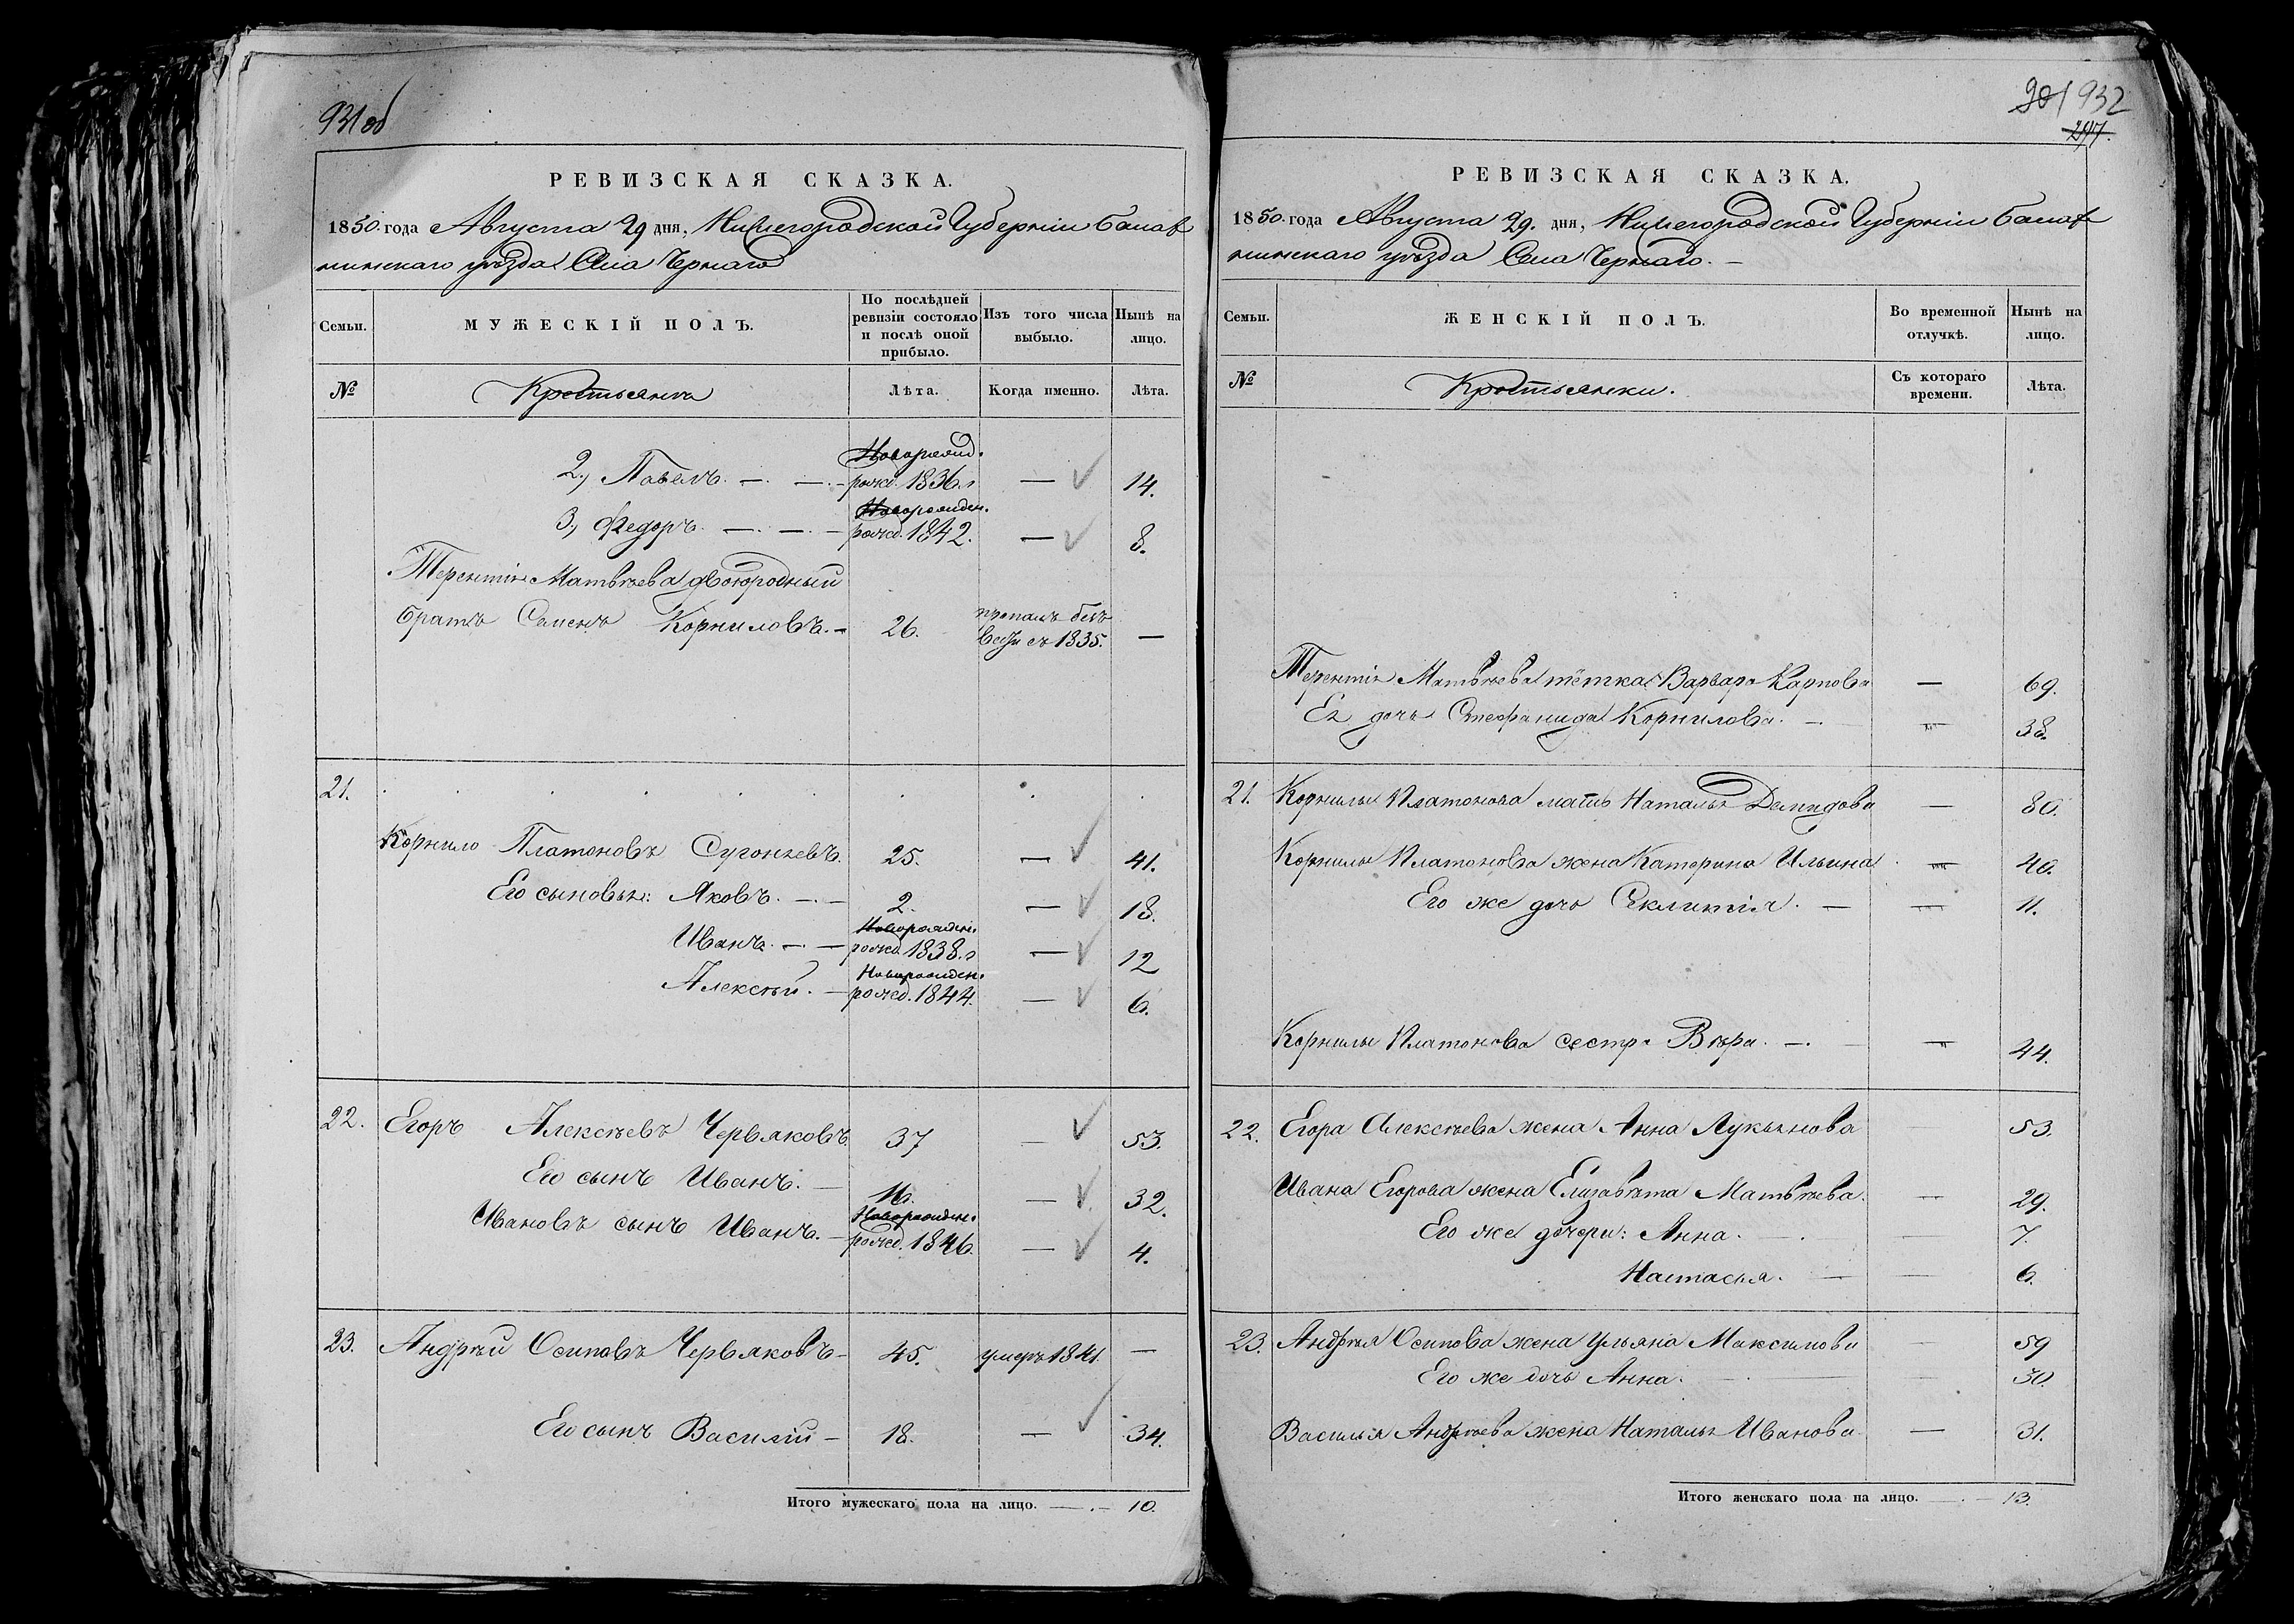 931об
РЕВИЗСКАЯ СКАЗКА.
1850. года Августа 29 дня, Нижегородской Губерніи Балах
нинскаго уѣзда Села Чернаго
Семьи.
МУЖЕСКІЙ ПОЛЪ.
По послѣдней ревизіи состояло и послѣ оной прибыло.
Изъ того числа выбыло.
Нынѣ на лицо.
№
Крестьяне
Лѣта.
Когда именно.
Лѣта.
Новорожд.
2., Павелъ. — рожд. 1836. — 14.
Новорожден.
3., Федоръ. — рожд. 1842. — 8.
Терентія Матвѣева двоюродный
братъ Семенъ Корниловъ. — 26. пропалъ безъ вести съ 1835. —
21.
Корнило Платоновъ Сугоняевъ. 25. — 41.
Его сыновья: Яковъ. — 2. — 18.
Новорожден.
Иванъ. — рожд. 1838. — 12
Новорожден.
Алексѣй. — рожд. 1844. — 6.
22. Егоръ Алексѣевъ Червяковъ. 37 — 53.
Его сынъ Иванъ. — 16. — 32.
Новорожден.
Ивановъ сынъ Иванъ. — рожд. 1846. — 4.
23. Андрѣй Осиповъ Червяковъ — 45. умеръ 1841. —
Его сынъ Василій — 18. — 34.
Итого мужескаго пола на лицо. — 10.
932
247.
РЕВИЗСКАЯ СКАЗКА.
1850. года Августа 29. дня, Нижегородской Губерніи Балах
нинскаго уѣзда Села Чернаго. —
Семьи.
ЖЕНСКІЙ ПОЛЪ.
Во временной отлучкѣ.
Нынѣ на лицо.
№
Крестьянки.
Съ котораго времени.
Лѣта.
Терентія Матвѣева тётка Варвара Карпова — 69.
Ея дочь Стефанида Корнилова. — 38.
21. Корнилы Платонова мать Наталья Демидова — 80.
Корнилы Платонова жена Катерина Ильина — 40.
Его же дочь — 11.
Корнилы Платонова сестра Вѣра. — 44.
22. Егора Алексѣева жена Анна Лукьянова 53.
Ивана Егорова жена Елизавѣта Матвѣева. — 29.
Его же дочери: Анна. — 7.
Настасья. — 6.
23. Андрѣя Осипова жена Ульяна Максимова — 59
Его же дочь Анна. — 30.
Василья Андрѣева жена Наталья Иванова — 31.
Итого женскаго пола на лицо. — 13.